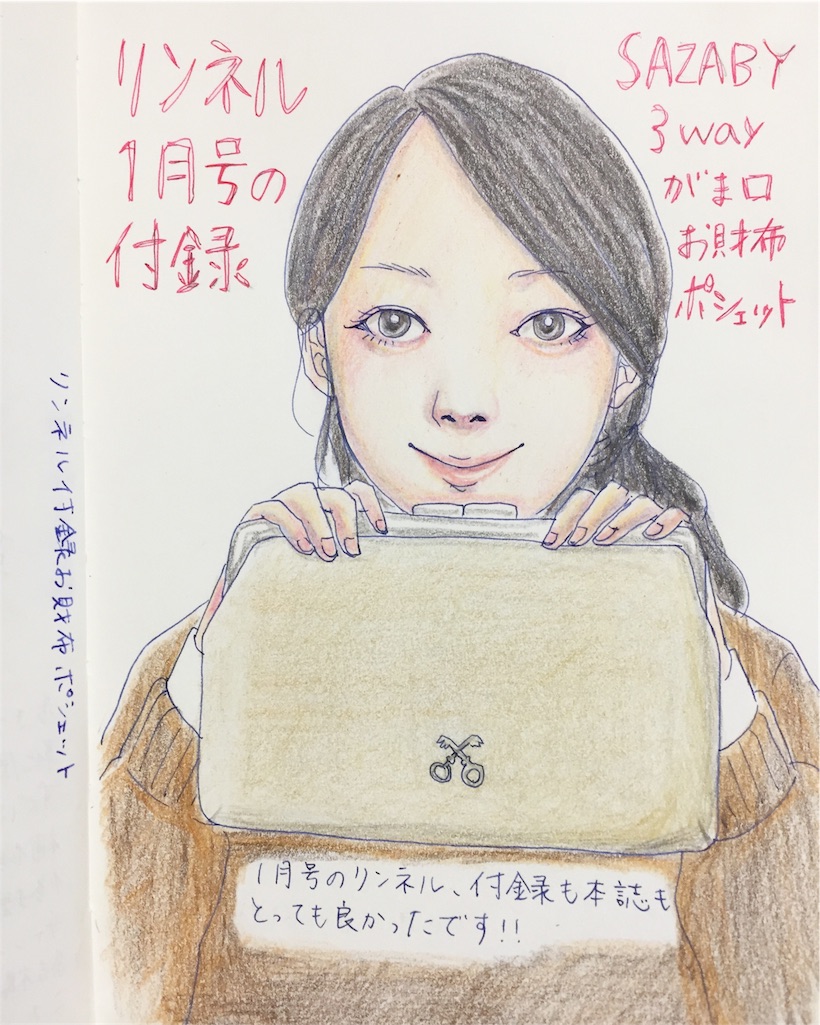 リンネル
1月号の
付録
SAZABY
3way
がま口
お財布
ポシェット
リンネル付録お財布ポシェット
1月号のリンネル、付録も本誌も
とっても良かったです!!